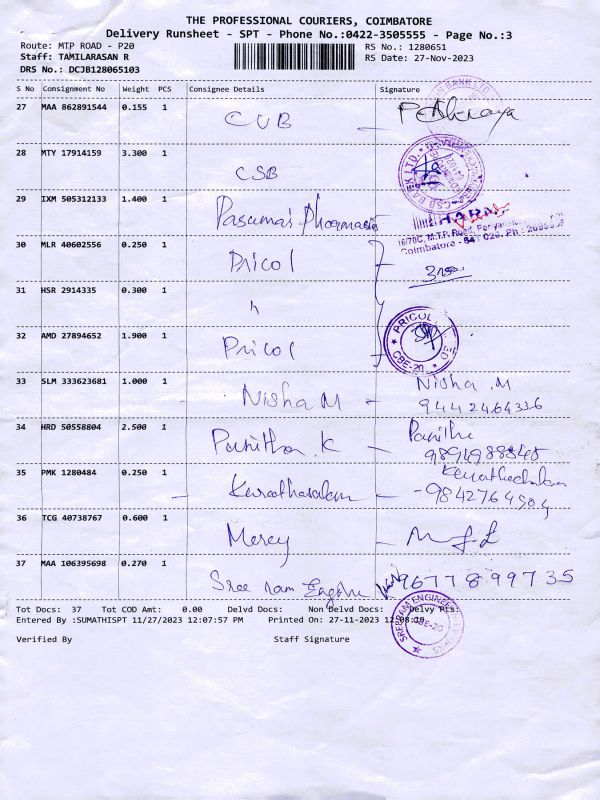 THE PROFESSIONAL COURIERS, COIMBATORE
Delivery Runsheet - SPT - Phone No.:0422-3505555 - Page No.:3
Route: MTP ROAD - P20 RS No.: 1280651
Staff: TAMILARASAN R RS Date: 27-Nov-2023
DRS No.: DCJB128065103
S No Consignment No Weight PCS Consignee Details Signature
27 MAA 862891544 0.155 1
CUB
28 MTY 17914159 3.300 1
CSB
29 IXM 505312133 1.400 1
Pasumai Pharmacies
30 MLR 40602556 0.250 1
Pricol
31 HSR 2914335 0.300 1
32 AMD 27894652 1.900 1
Pricol
PRICOL
CBE-20
33 SLM 333623681 1.000 1 Nisha .M
Nisha M - 9442464336
34 HRD 50558804 2.500 1
Punitha K -
35 PMK 1280484 0.250 1
36 TCG 40738767 0.600 1
Mercy
37 MAA 106395698 0.270 1
Sree ram 9677899735
Tot Docs: 37 Tot COD Amt: 0.00 Delvd Docs: Non Delvd Docs: Delvy Pts:
Entered By :SUMATHISPT 11/27/2023 12:07:57 PM Printed On: 27-11-2023 12:08:39
SREE RAM ENGINEERING WORKS
CBE-20
Verified By Staff Signature